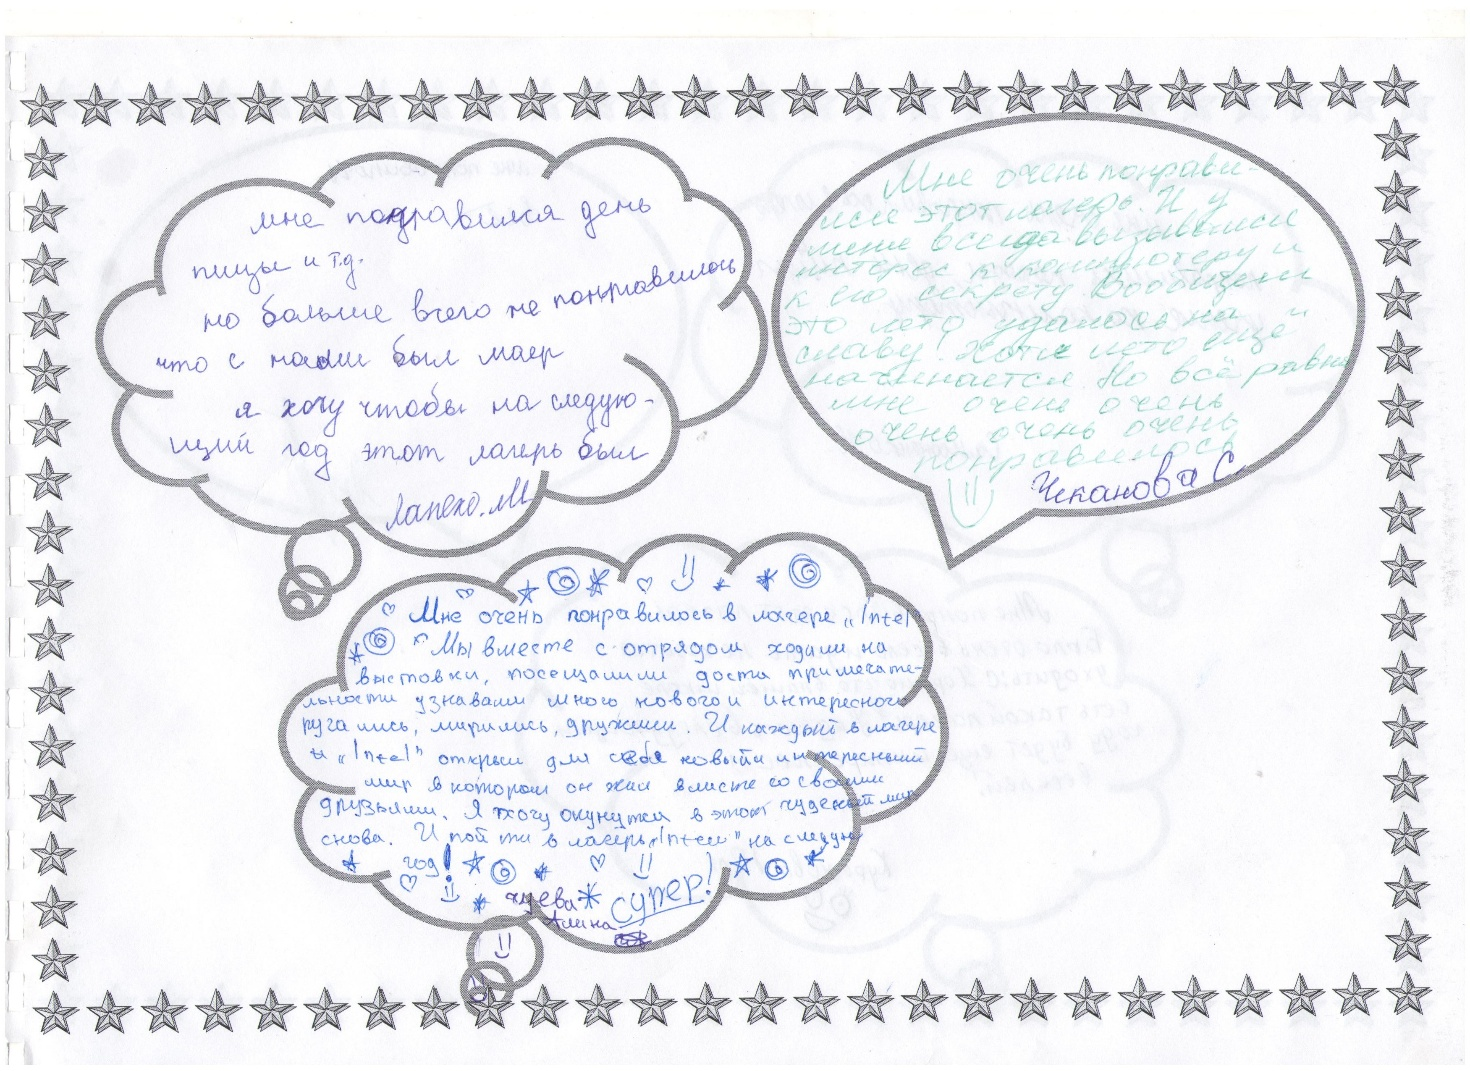 мне подравился день
пицы и т.д.
но больше всего не понравилось
что с нами был маер
я хочу чтобы на следую-
щий год этот лагерь был
Лапехо. М
Мне очень понрави-
лся этот лагерь. И у
меня всегда вызывался
интерес к компьютеру и
к его секрету. Вообщем
это лето удалось на
славу! Хотя лето ещё
начинается. Но всё равно
мне очень очень
очень очень очень
понравилось
Чеканова С
Мне очень понравилось в лагере „Intel"
Мы вместе с отрядом ходили на
выстовки, посещалили доста примечате-
льности узнавали много нового и интересного
ругались, мирились, дружили. И каждый в лагере
„Intel" открыл для себя новый интересный
мир в котором он жил вместе со своими
друзьями. Я хочу окунутся в этот чудесный мир
снова. И пойти в лагерь „Intel" на следую
год!
Алина
супер!